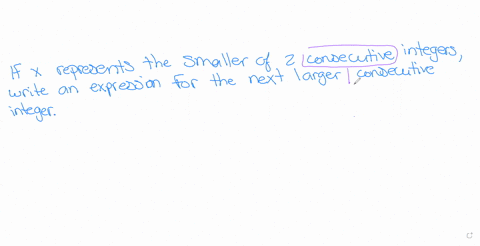 If x represents the smaller of 2 consecutive integers,
write an expression for the next larger consecutive
integer.